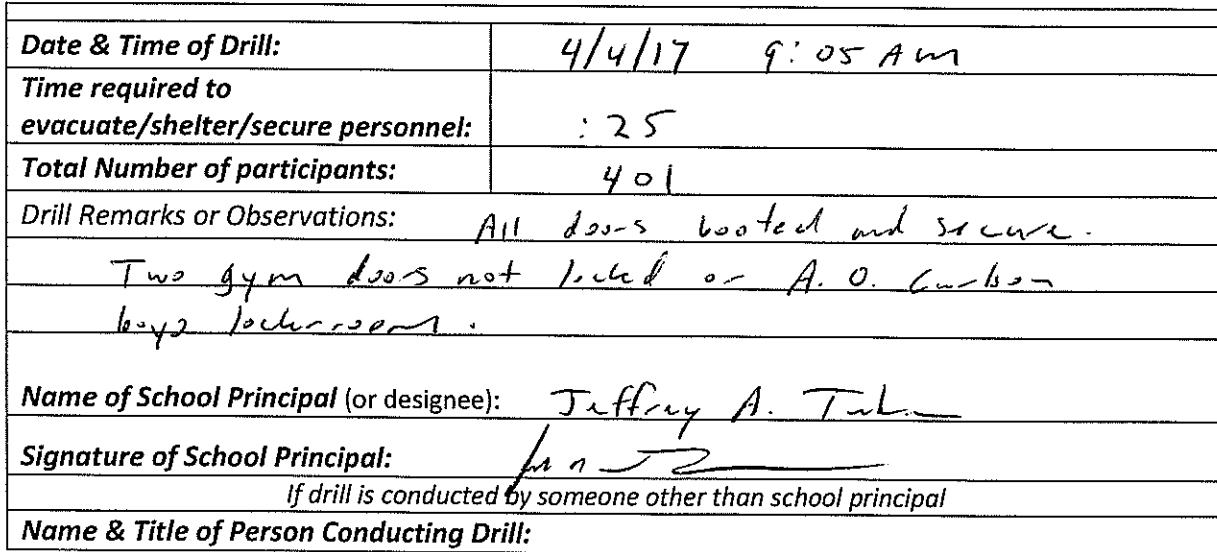 Date & Time of Drill: 4/4/17 9:05 Am
Time required to
evacuate/shelter/secure personnel: :25
Total Number of participants: 401
Drill Remarks or Observations: All doors booted and secure.
Two gym doors not locked or A. O.
boys lockerroom.
Name of School Principal (or designee): Jeffrey A.
Signature of School Principal:
If drill is conducted by someone other than school principal
Name & Title of Person Conducting Drill: